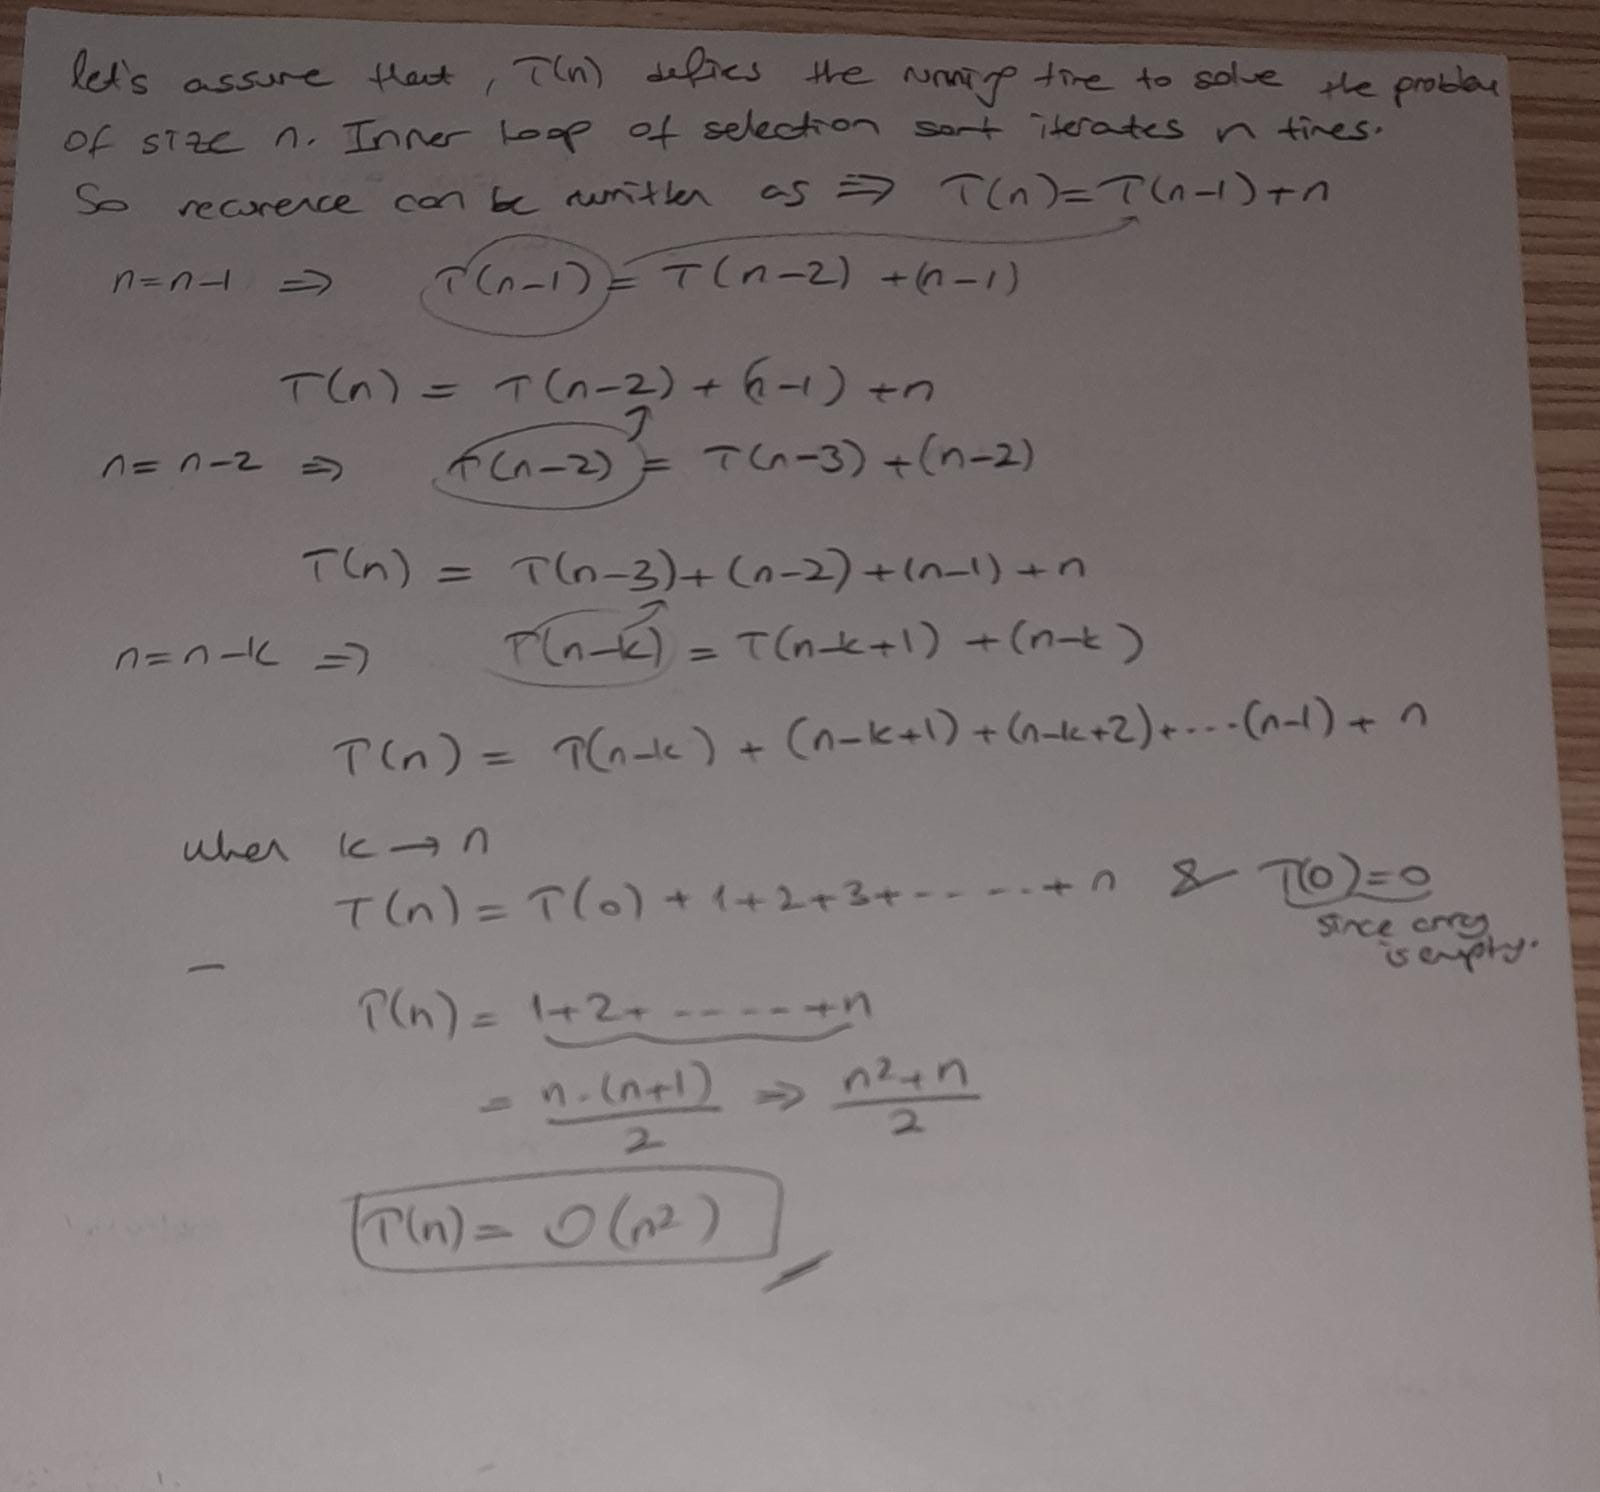 let's assume that, T(n) defines the running time to solve the problem
of size n. Inner loop of selection sort iterates n times.
So recurence can be written as ⇒ T(n)=T(n-1)+n
n=n-1 ⇒ T(n-1)=T(n-2)+(n-1)
T(n) = T(n-2)+(n-1)+n
n=n-2 ⇒ T(n-2)=T(n-3)+(n-2)
T(n) = T(n-3)+(n-2)+(n-1)+n
n=n-k ⇒ T(n-k)=T(n-k+1)+(n-k)
T(n) = T(n-k)+(n-k+1)+(n-k+2)+....(n-1)+n
when k→n
T(n) = T(0)+1+2+3+-----+n & T(0)=0
since array
is empty.
T(n) = 1+2+-----+n
= n.(n+1)/2 ⇒ n²+n/2
T(n) = O(n²)